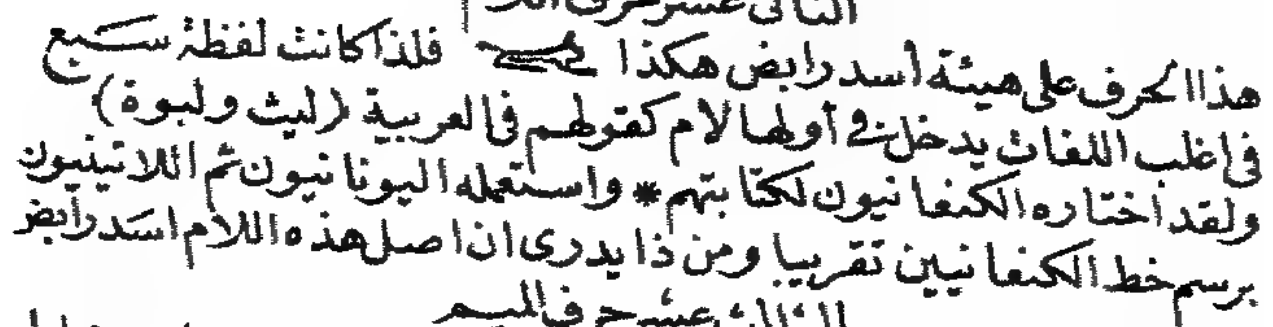 الثانى عشر حرف اللام
هذا الحرف على هيئة أسد رابض هكذا فلذا كانت لفظة سبع
فى اغلب اللغات يدخل فى أولها لام كقولهم فى العربية (ليث ولبوة)
ولقد أختاره الكنعانيون لكتابتهم * واستعمله اليونانيون ثم اللاتينيون
برسم خط الكنعانيين تقريبا ومن ذا يدرى ان اصل هذه اللام اسد رابض
الثالث عشر حرف الميم